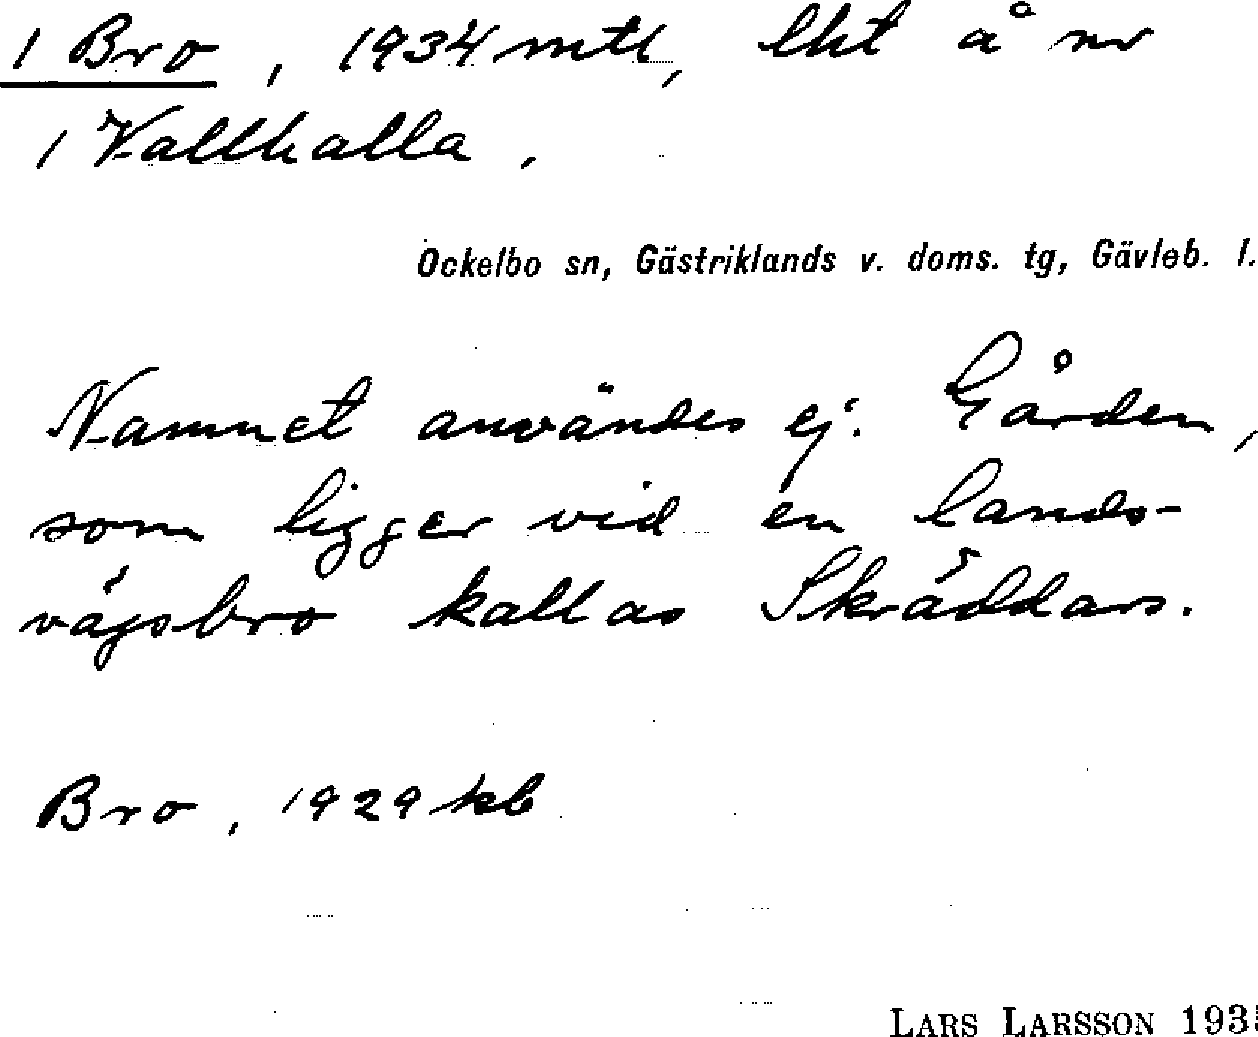 1 Bro, 1934 mtl, lht å nr
1 Vallhalla.
Ockelbo sn, Gästriklands v. doms. tg, Gävleb. l.
Namnet användes ej. Gården,
som ligger vid en lands-
vägsbro kallas Skräddars.
Bro, 1929 kb
LARS LARSSON 193